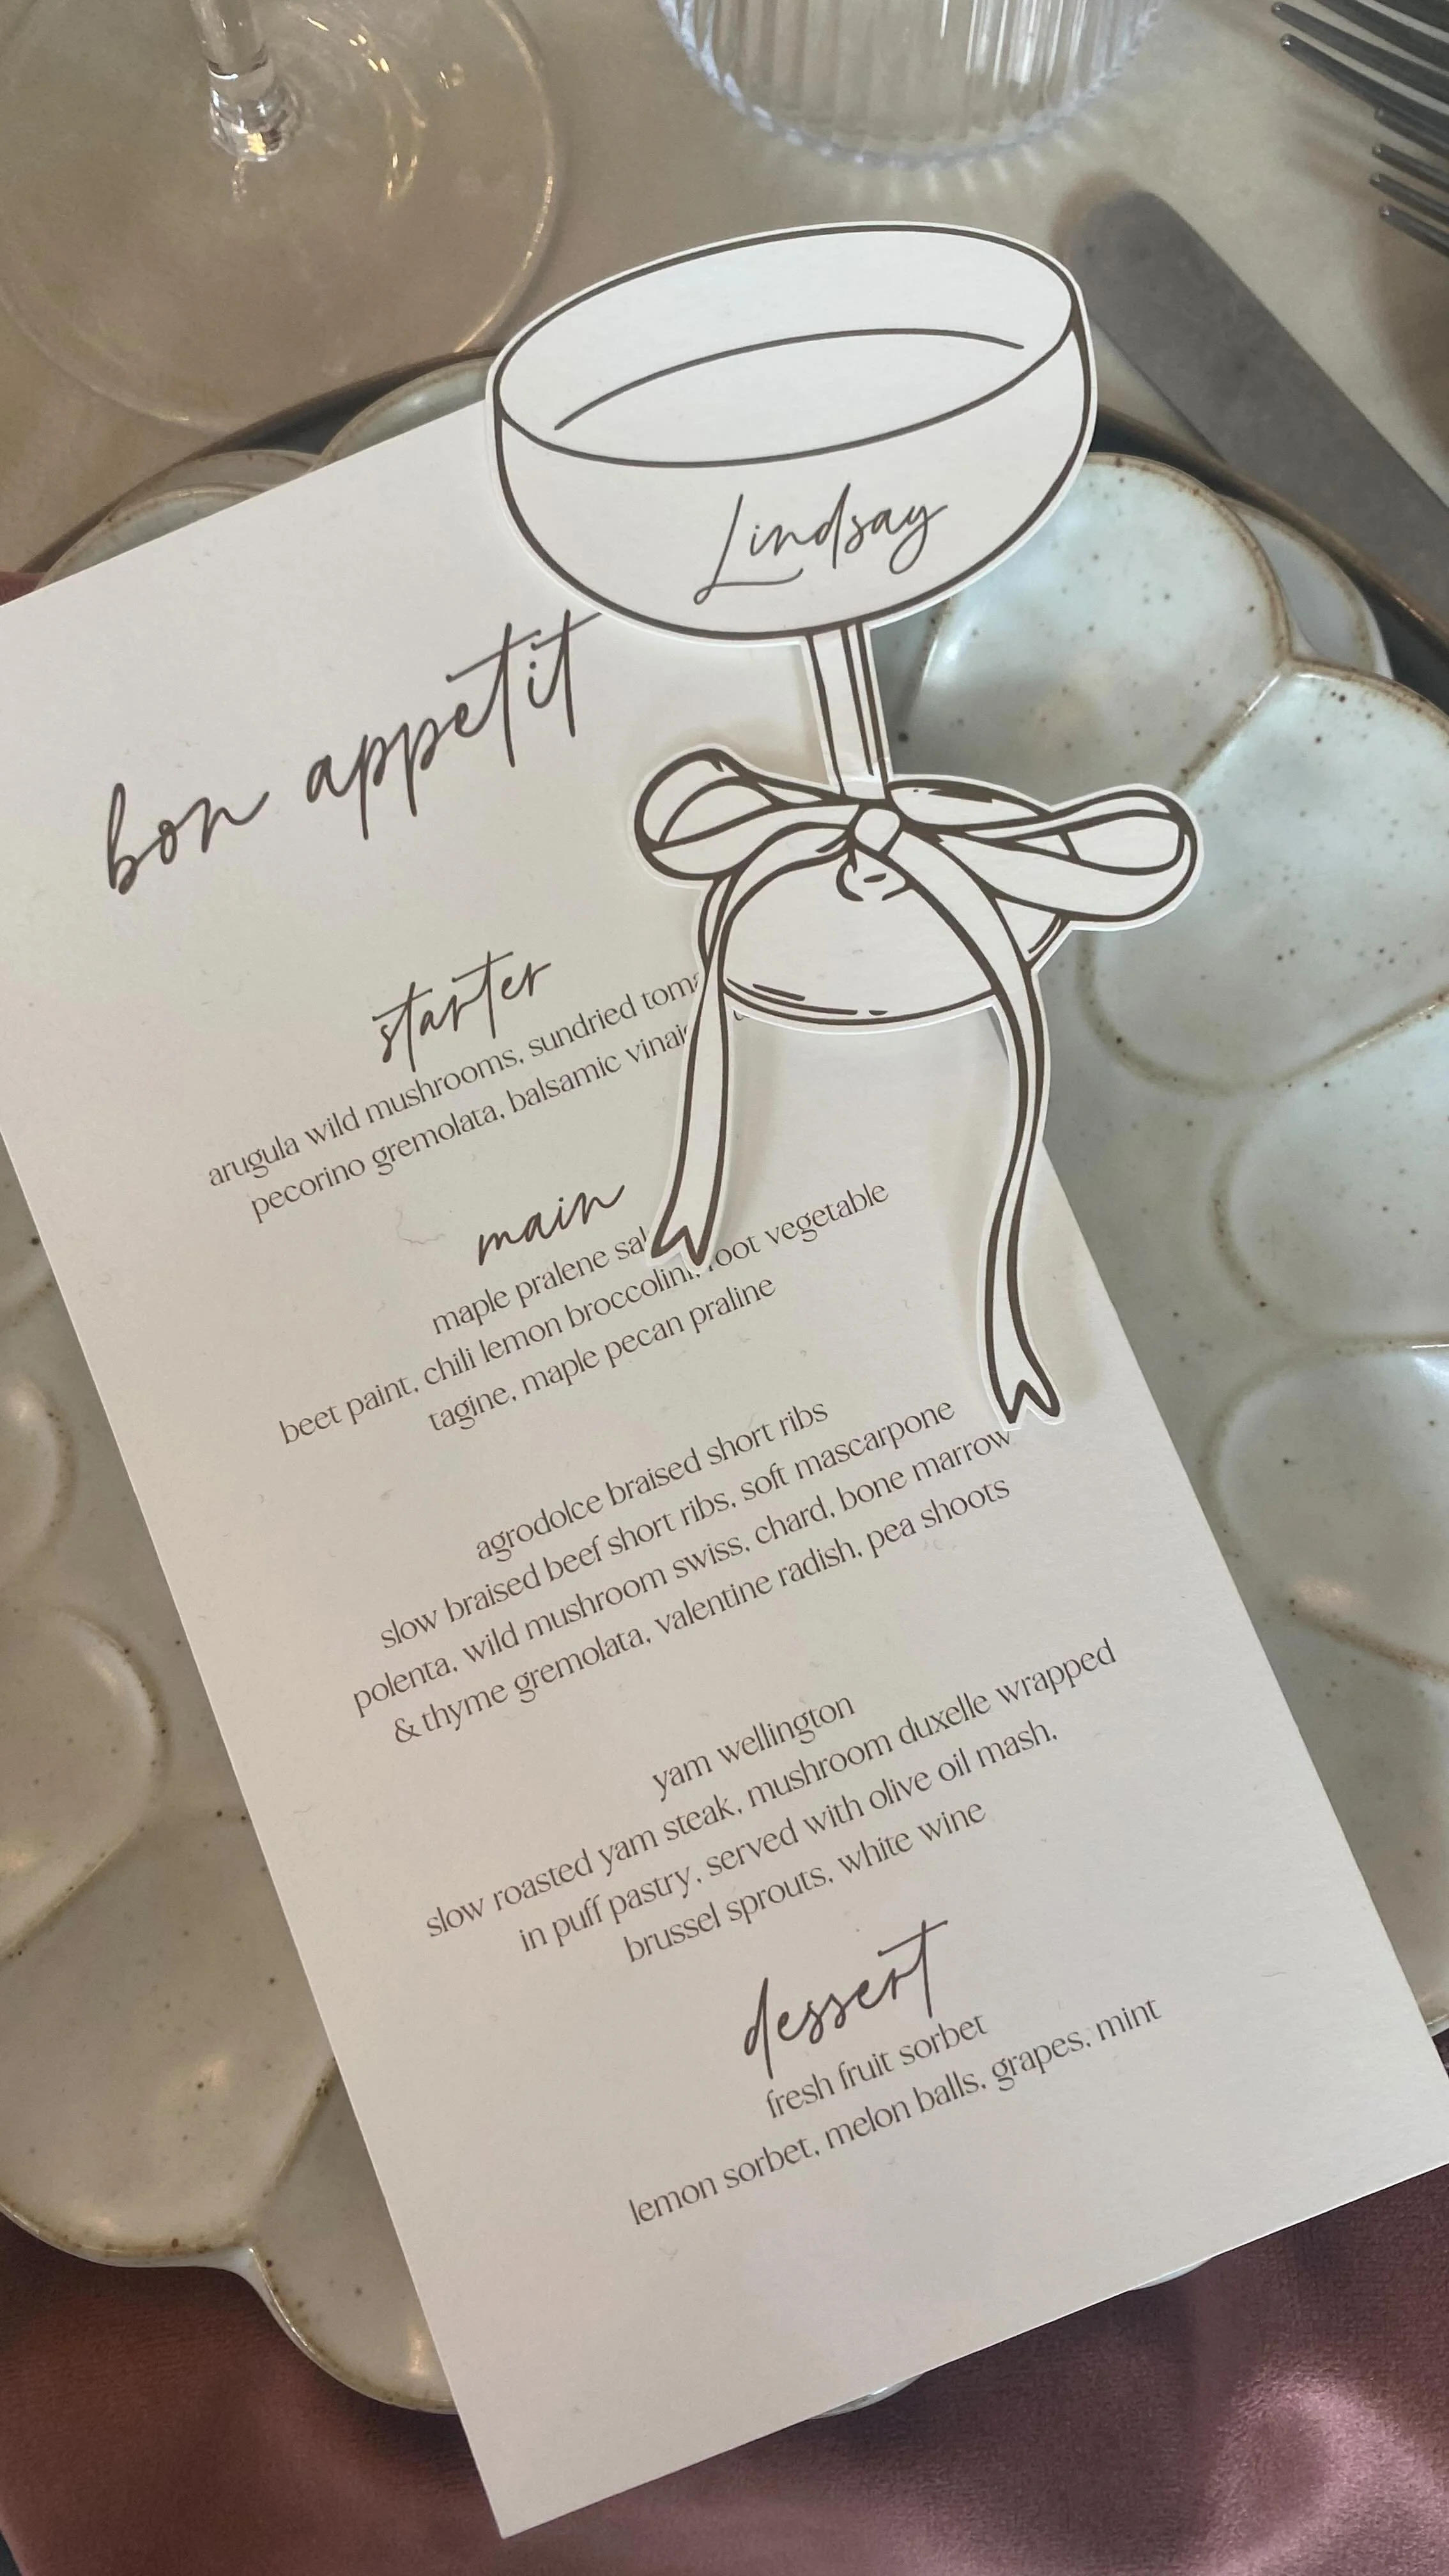 Lindsay
bon appetit
starter
arugula wild mushrooms, sundried
pecorino gremolata, balsamic
main
maple pralene
beet paint, chili lemon broccolini, root vegetable
tagine, maple pecan praline
agrodolce braised short ribs
slow braised beef short ribs, soft mascarpone
polenta, wild mushroom swiss, chard, bone marrow
& thyme gremolata, valentine radish, pea shoots
yam wellington
slow roasted yam steak, mushroom duxelle wrapped
in puff pastry, served with olive oil mash,
brussel sprouts, white wine
dessert
fresh fruit sorbet
lemon sorbet, melon balls, grapes, mint